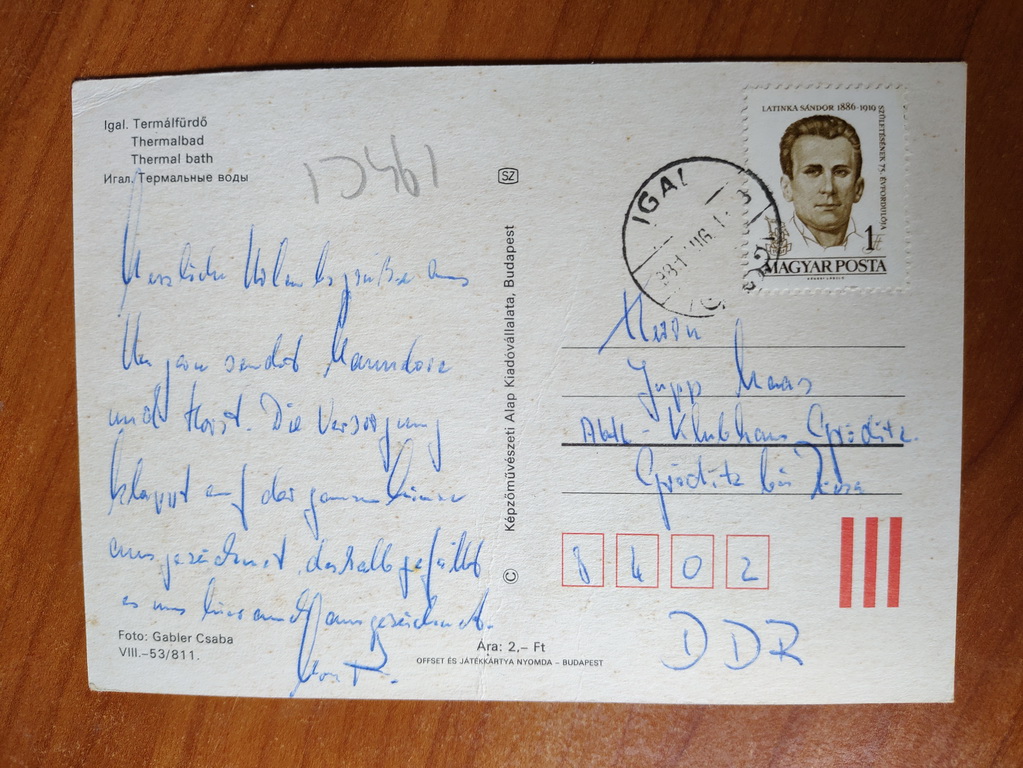 Igal. Termálfürdő
Thermalbad
Thermal bath
Игал. Термальные воды
SZ
Herzliche Urlaubsgrüße aus
Ungarn sendet
und Horst. Die Versorgung
klappt auf der ganzen Linie
ausgezeichnet, deshalb gefällt
es uns hier auch ausgezeichnet.
Horst.
Foto: Gabler Csaba
VIII.–53/811.
Képzőművészeti Alap Kiadóvállalata, Budapest
©
Ára: 2,– Ft
OFFSET ÉS JÁTÉKKÁRTYA NYOMDA – BUDAPEST
LATINKA SÁNDOR 1886-1919
SZÜLETÉSÉNEK 75. ÉVFORDULÓJA
1 Ft
MAGYAR POSTA
IGAL
Herrn
Jupp Maas
Klubhaus Gröditz
Gröditz bei Riesa
8402
DDR